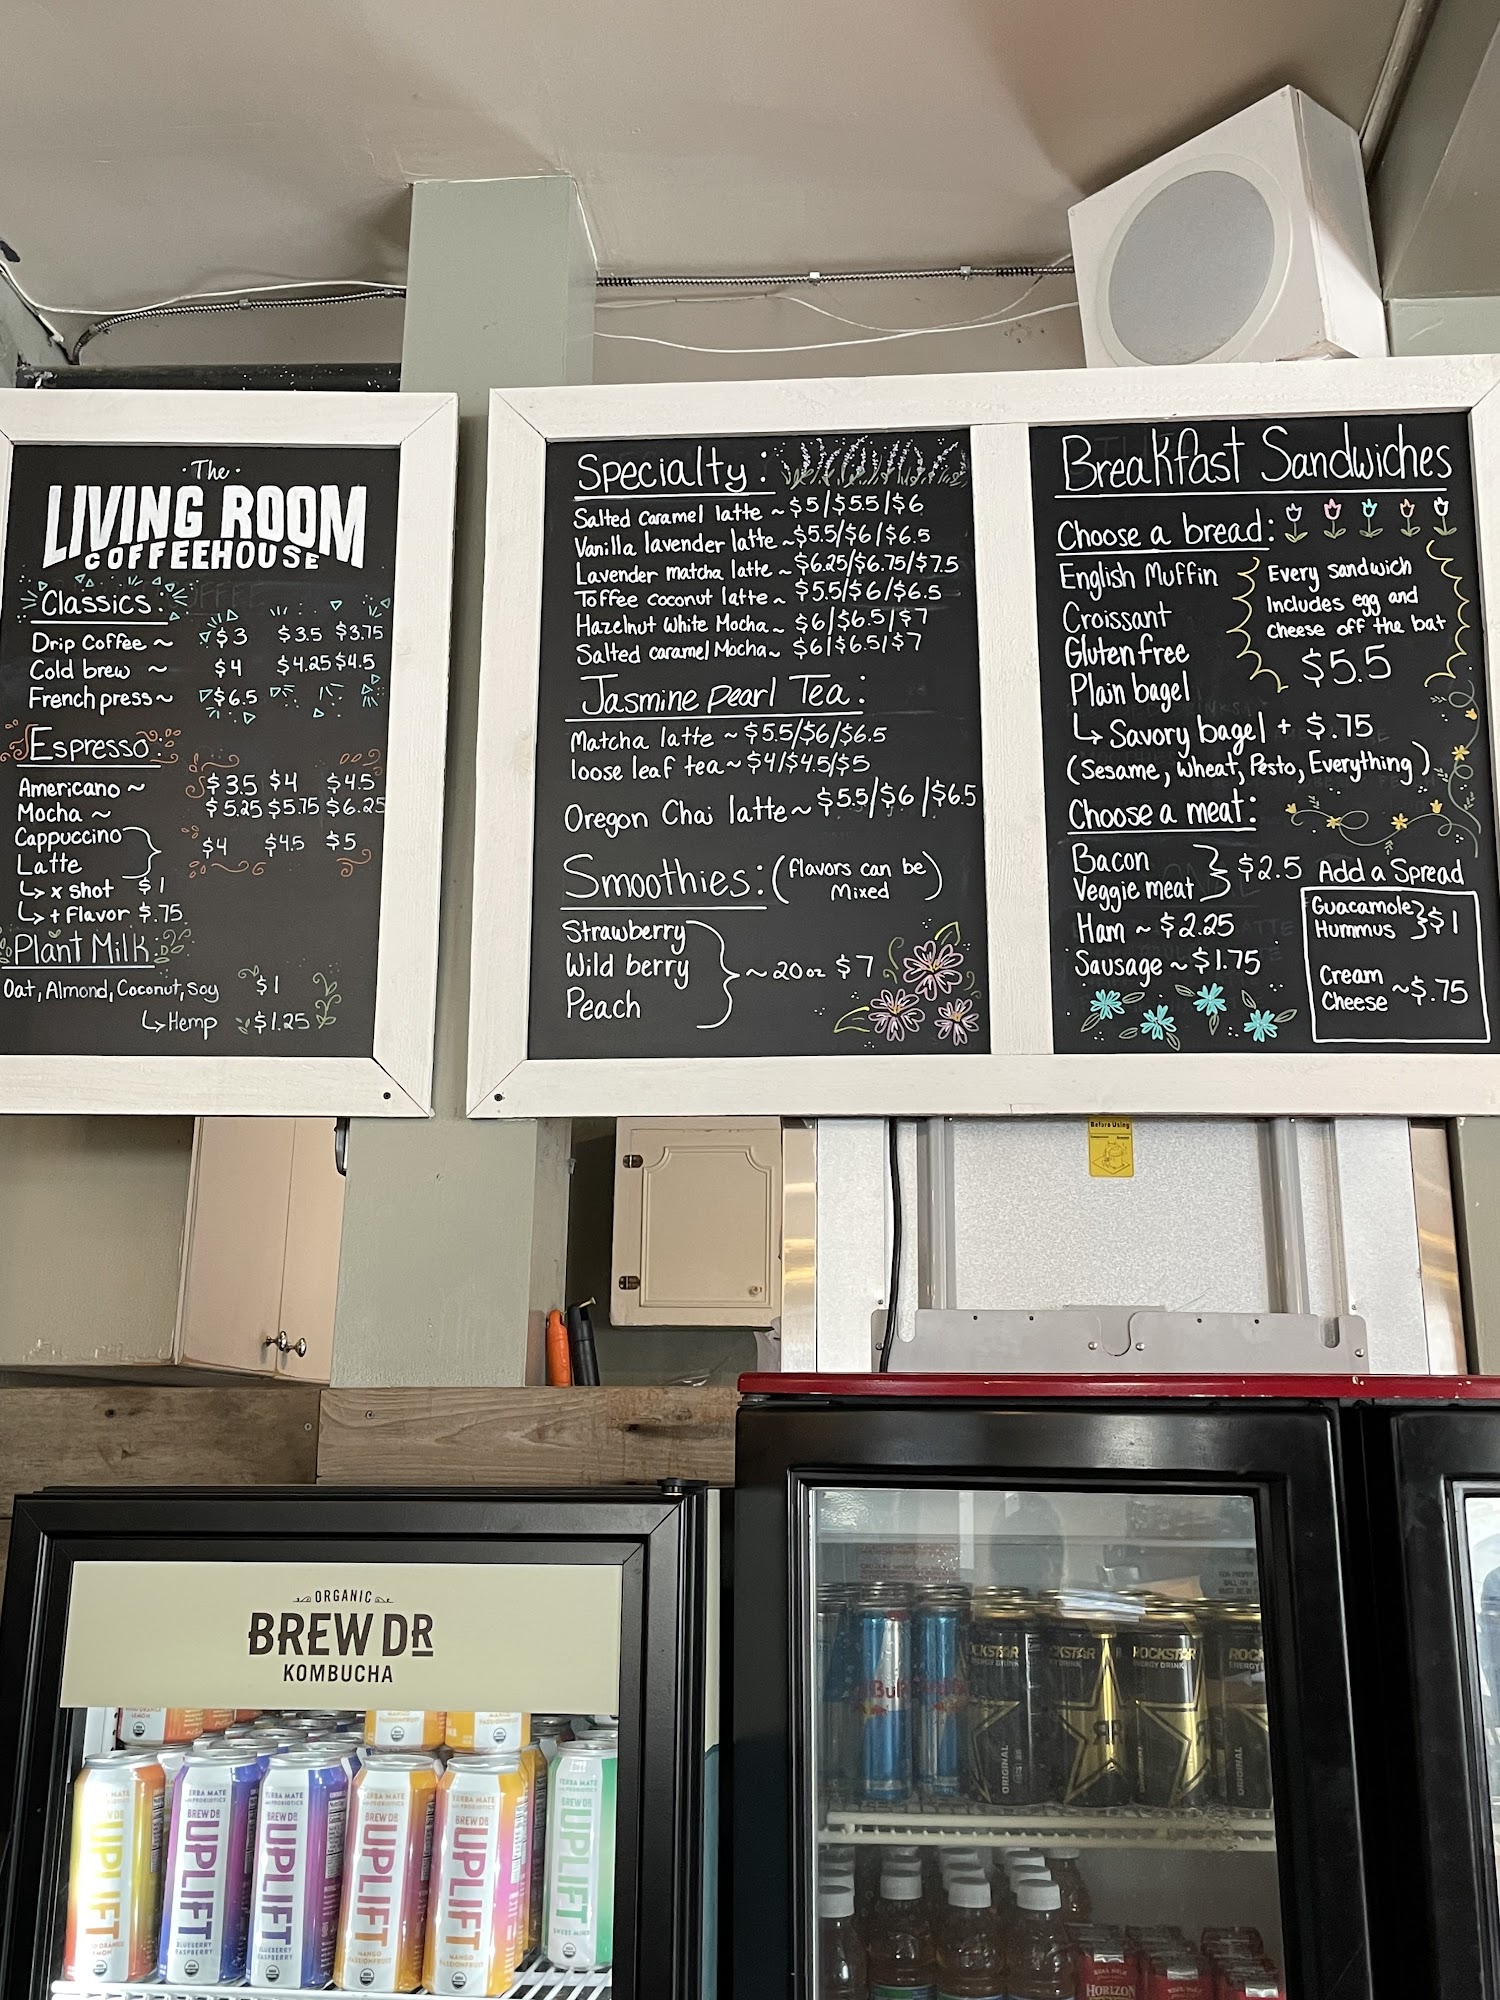 The
LIVING ROOM
COFFEEHOUSE
Classics:
Drip Coffee ~ $3 $3.5 $3.75
Cold brew ~ $4 $4.25 $4.5
French press ~ $6.5
Espresso:
Americano ~ $3.5 $4 $4.5
Mocha ~ $5.25 $5.75 $6.25
Cappuccino
Latte $4 $4.5 $5
↳ x shot $1
↳ + Flavor $.75
Plant Milk:
Oat, Almond, Coconut, Soy $1
↳ Hemp $1.25
Specialty:
Salted Caramel latte ~ $5/$5.5/$6
Vanilla lavender latte ~ $5.5/$6/$6.5
Lavender Matcha latte ~ $6.25/$6.75/$7.5
Toffee coconut latte ~ $5.5/$6/$6.5
Hazelnut White Mocha ~ $6/$6.5/$7
Salted caramel Mocha ~ $6/$6.5/$7
Jasmine Pearl Tea:
Matcha latte ~ $5.5/$6/$6.5
loose leaf tea ~ $4/$4.5/$5
Oregon Chai latte ~ $5.5/$6/$6.5
Smoothies: (flavors can be Mixed)
Strawberry
Wild berry ~ 20oz $7
Peach
Breakfast Sandwiches
Choose a bread:
English Muffin
Croissant
Gluten free
Plain bagel
↳ Savory bagel + $.75
(Sesame, Wheat, Pesto, Everything)
Every sandwich
Includes egg and
Cheese off the bat
$5.5
Choose a meat:
Bacon
Veggie meat $2.5
Ham ~ $2.25
Sausage ~ $1.75
Add a Spread
Guacamole
Hummus $1
Cream
Cheese ~ $.75
Before Using
ORGANIC
BREW DR
KOMBUCHA
YERBA MATE
BREW DR
UPLIFT
YERBA MATE
BREW DR
UPLIFT
BLUEBERRY
RASPBERRY
YERBA MATE
BREW DR
UPLIFT
BLUEBERRY
RASPBERRY
YERBA MATE
BREW DR
UPLIFT
MANGO
PASSIONFRUIT
YERBA MATE
BREW DR
UPLIFT
MANGO
PASSIONFRUIT
YERBA MATE
BREW DR
UPLIFT
SWEET MINT
ROCKSTAR
ENERGY DRINK
ORIGINAL
ROCKSTAR
ENERGY DRINK
ORIGINAL
HORIZON